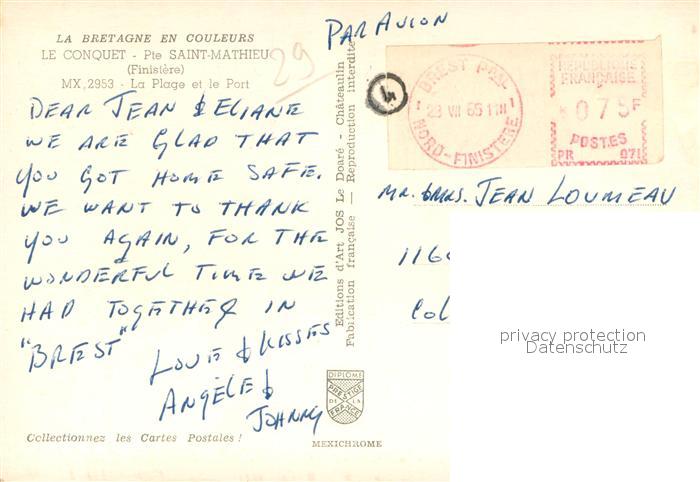 LA BRETAGNE EN COULEURS
LE CONQUET - Pte SAINT-MATHIEU
(Finistère)
MX. 2953 - La Plage et le Port
29
PAR AVION
DEAR JEAN & ELIANE
WE ARE GLAD THAT
YOU GOT HOME SAFE.
WE WANT TO THANK
YOU AGAIN, FOR THE
WONDERFUL TIME WE
HAD TOGETHER IN
"BREST"
LOVE & KISSES
ANGÈLE &
JOHNNY
Collectionnez les Cartes Postales !
Editions d'Art JOS Le Doaré - Châteaulin
Fabrication française - Reproduction interdite
DIPLOME
PRESTIGE
DE LA
FRANCE
MEXICHROME
BREST PPAL
23 VII 65
NORD-FINISTERE
REPUBLIQUE
FRANÇAISE
075F
POSTES
PR 071
4
MR. & MRS. JEAN LOUMEAU
116
Col
privacy protection
Datenschutz